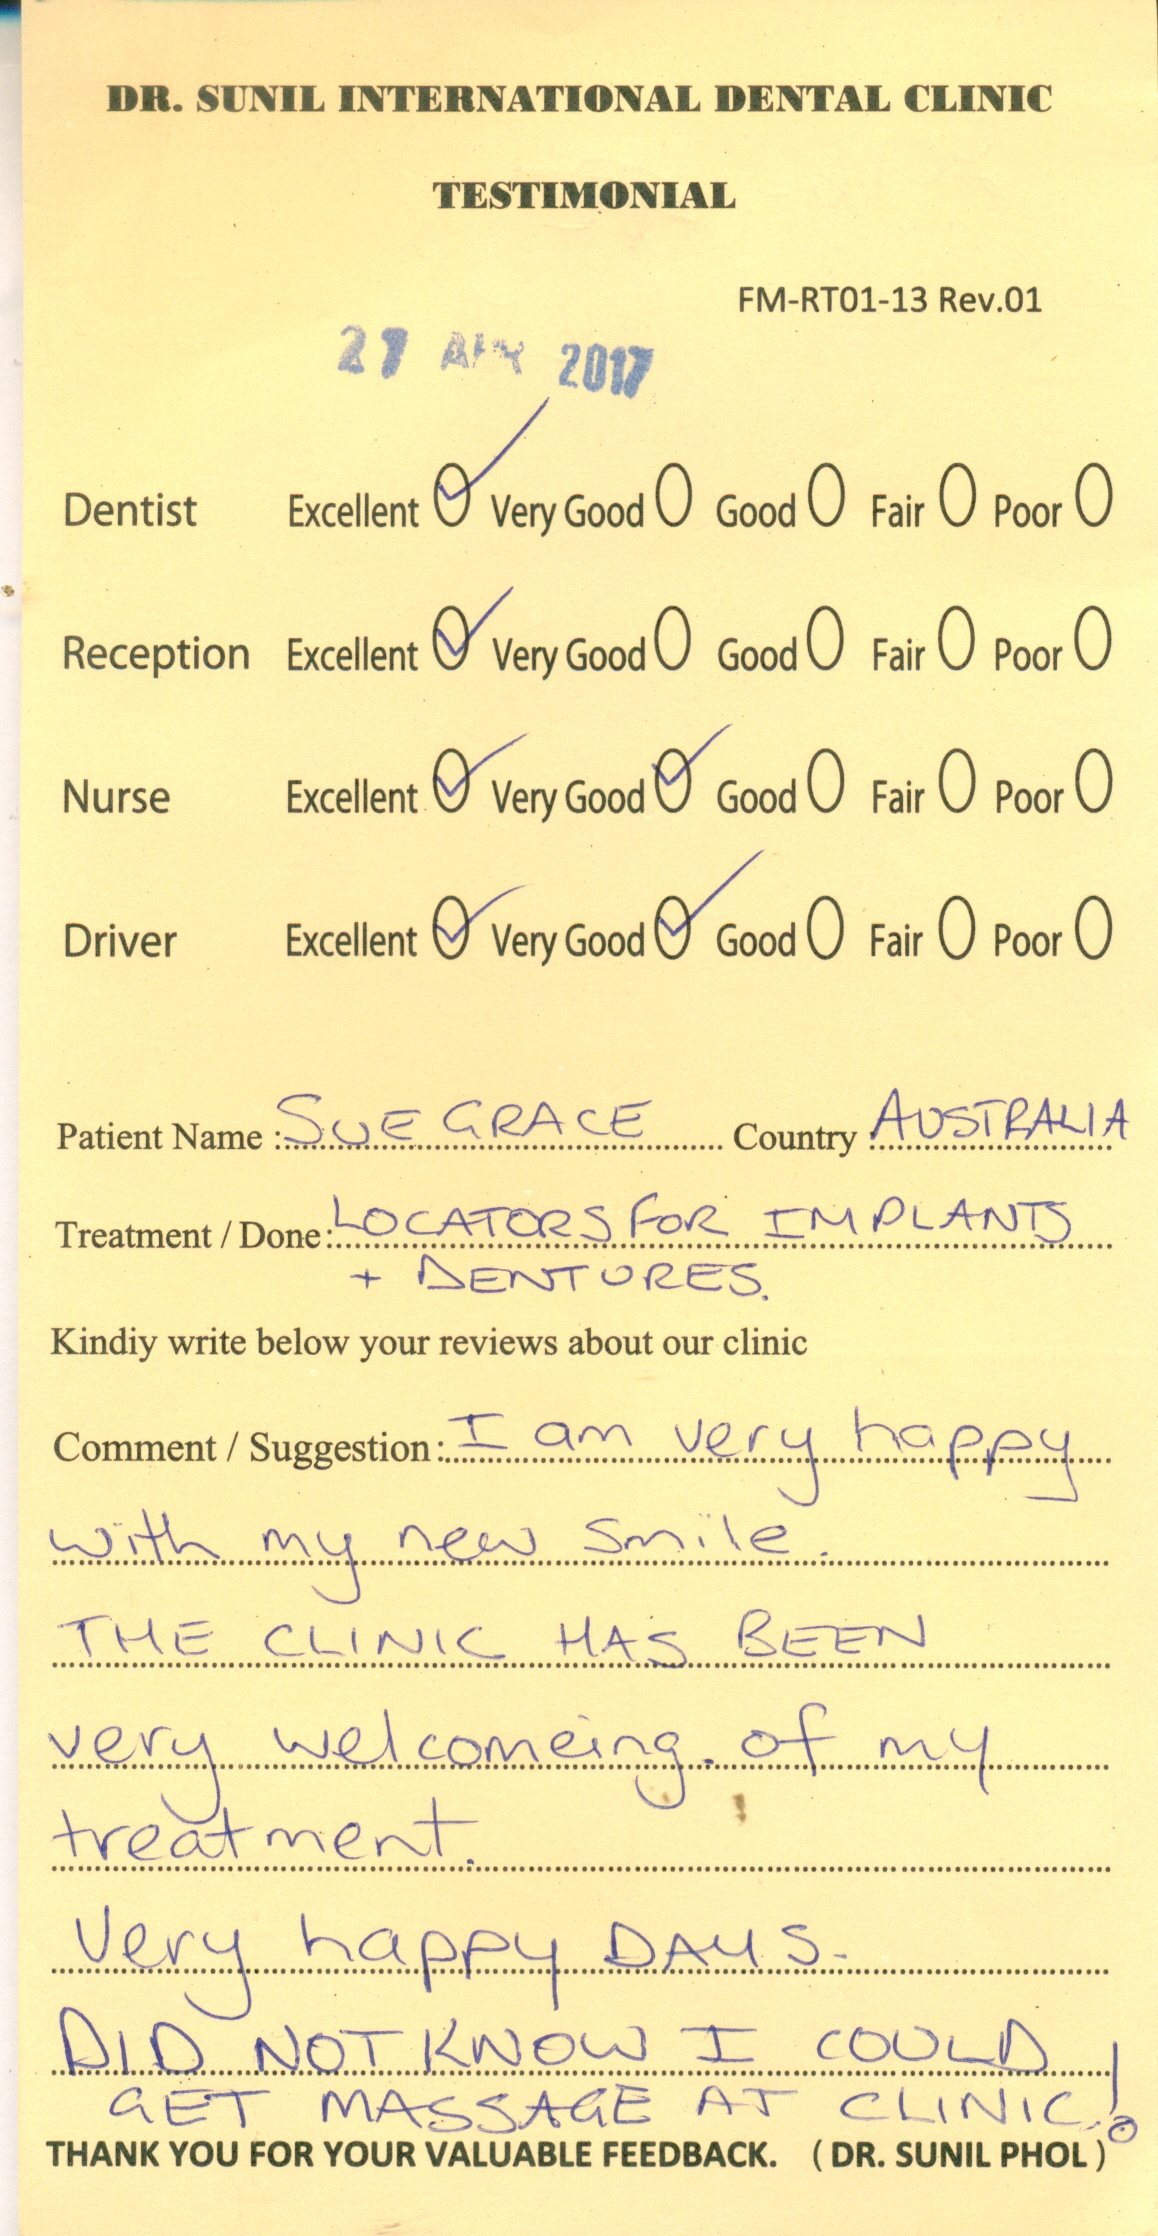 DR. SUNIL INTERNATIONAL DENTAL CLINIC
TESTIMONIAL
FM-RT01-13 Rev.01
27 APR 2017
Dentist Excellent Very Good Good Fair Poor
Reception Excellent Very Good Good Fair Poor
Nurse Excellent Very Good Good Fair Poor
Driver Excellent Very Good Good Fair Poor
Patient Name : SUE GRACE Country AUSTRALIA
Treatment / Done : LOCATORS FOR IMPLANTS
+ DENTURES.
Kindiy write below your reviews about our clinic
Comment / Suggestion : I am very happy
with my new smile.
THE CLINIC HAS BEEN
very welcomeing. of my
treatment.
Very happy DAYS.
DID NOT KNOW I COULD
GET MASSAGE AT CLINIC!
THANK YOU FOR YOUR VALUABLE FEEDBACK. ( DR. SUNIL PHOL )